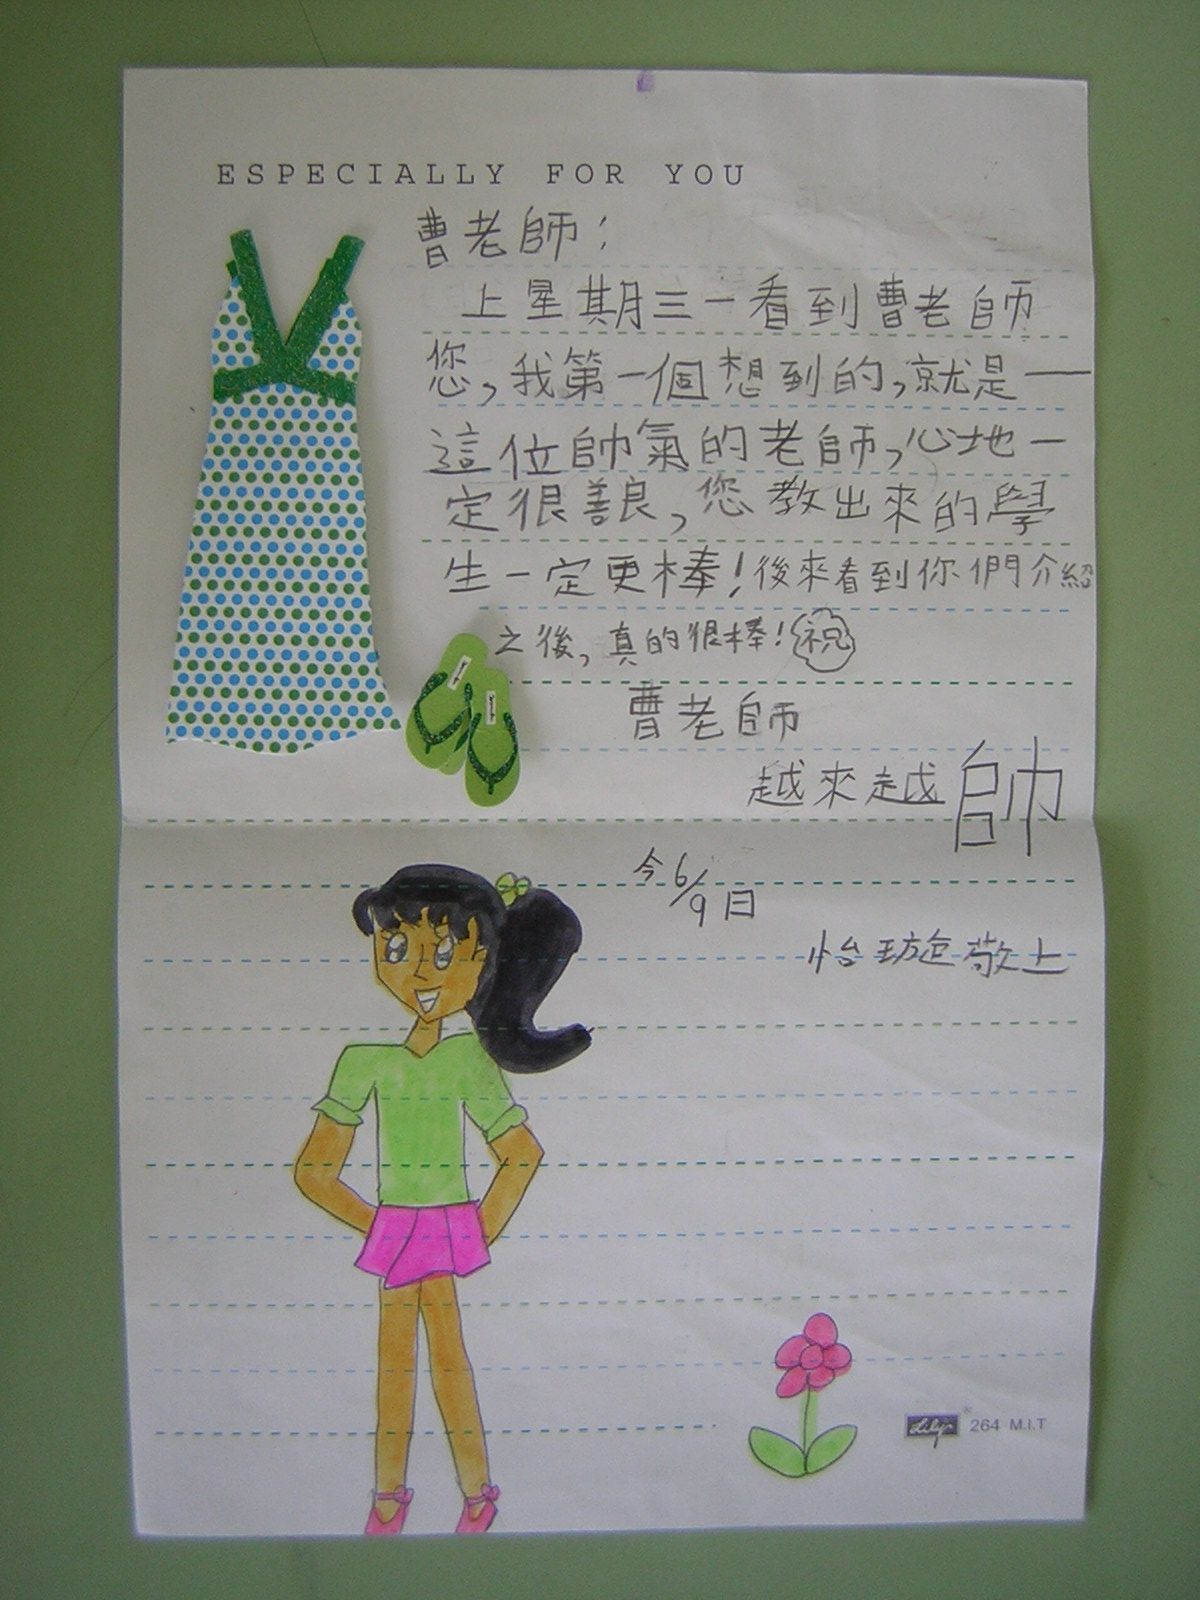 ESPECIALLY FOR YOU
曹老師:
上星期三一看到曹老師
您,我第一個想到的,就是——
這位帥氣的老師,心地一
定很善良,您教出來的學
生一定更棒!後來看到你們介紹
之後,真的很棒!祝
曹老師
越來越帥
今6/9日
怡璇敬上
Lily® 264 M.I.T